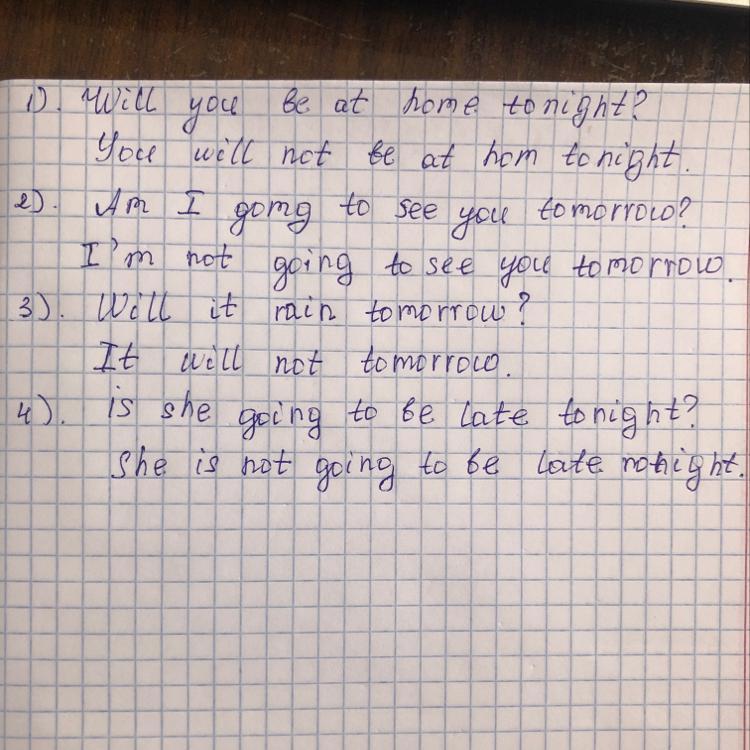 1). Will you be at home tonight?
You will not be at hom tonight.
2). Am I going to see you tomorrow?
I'm not going to see you tomorrow.
3). Will it rain tomorrow?
It will not tomorrow.
4). is she going to be late tonight?
She is not going to be late